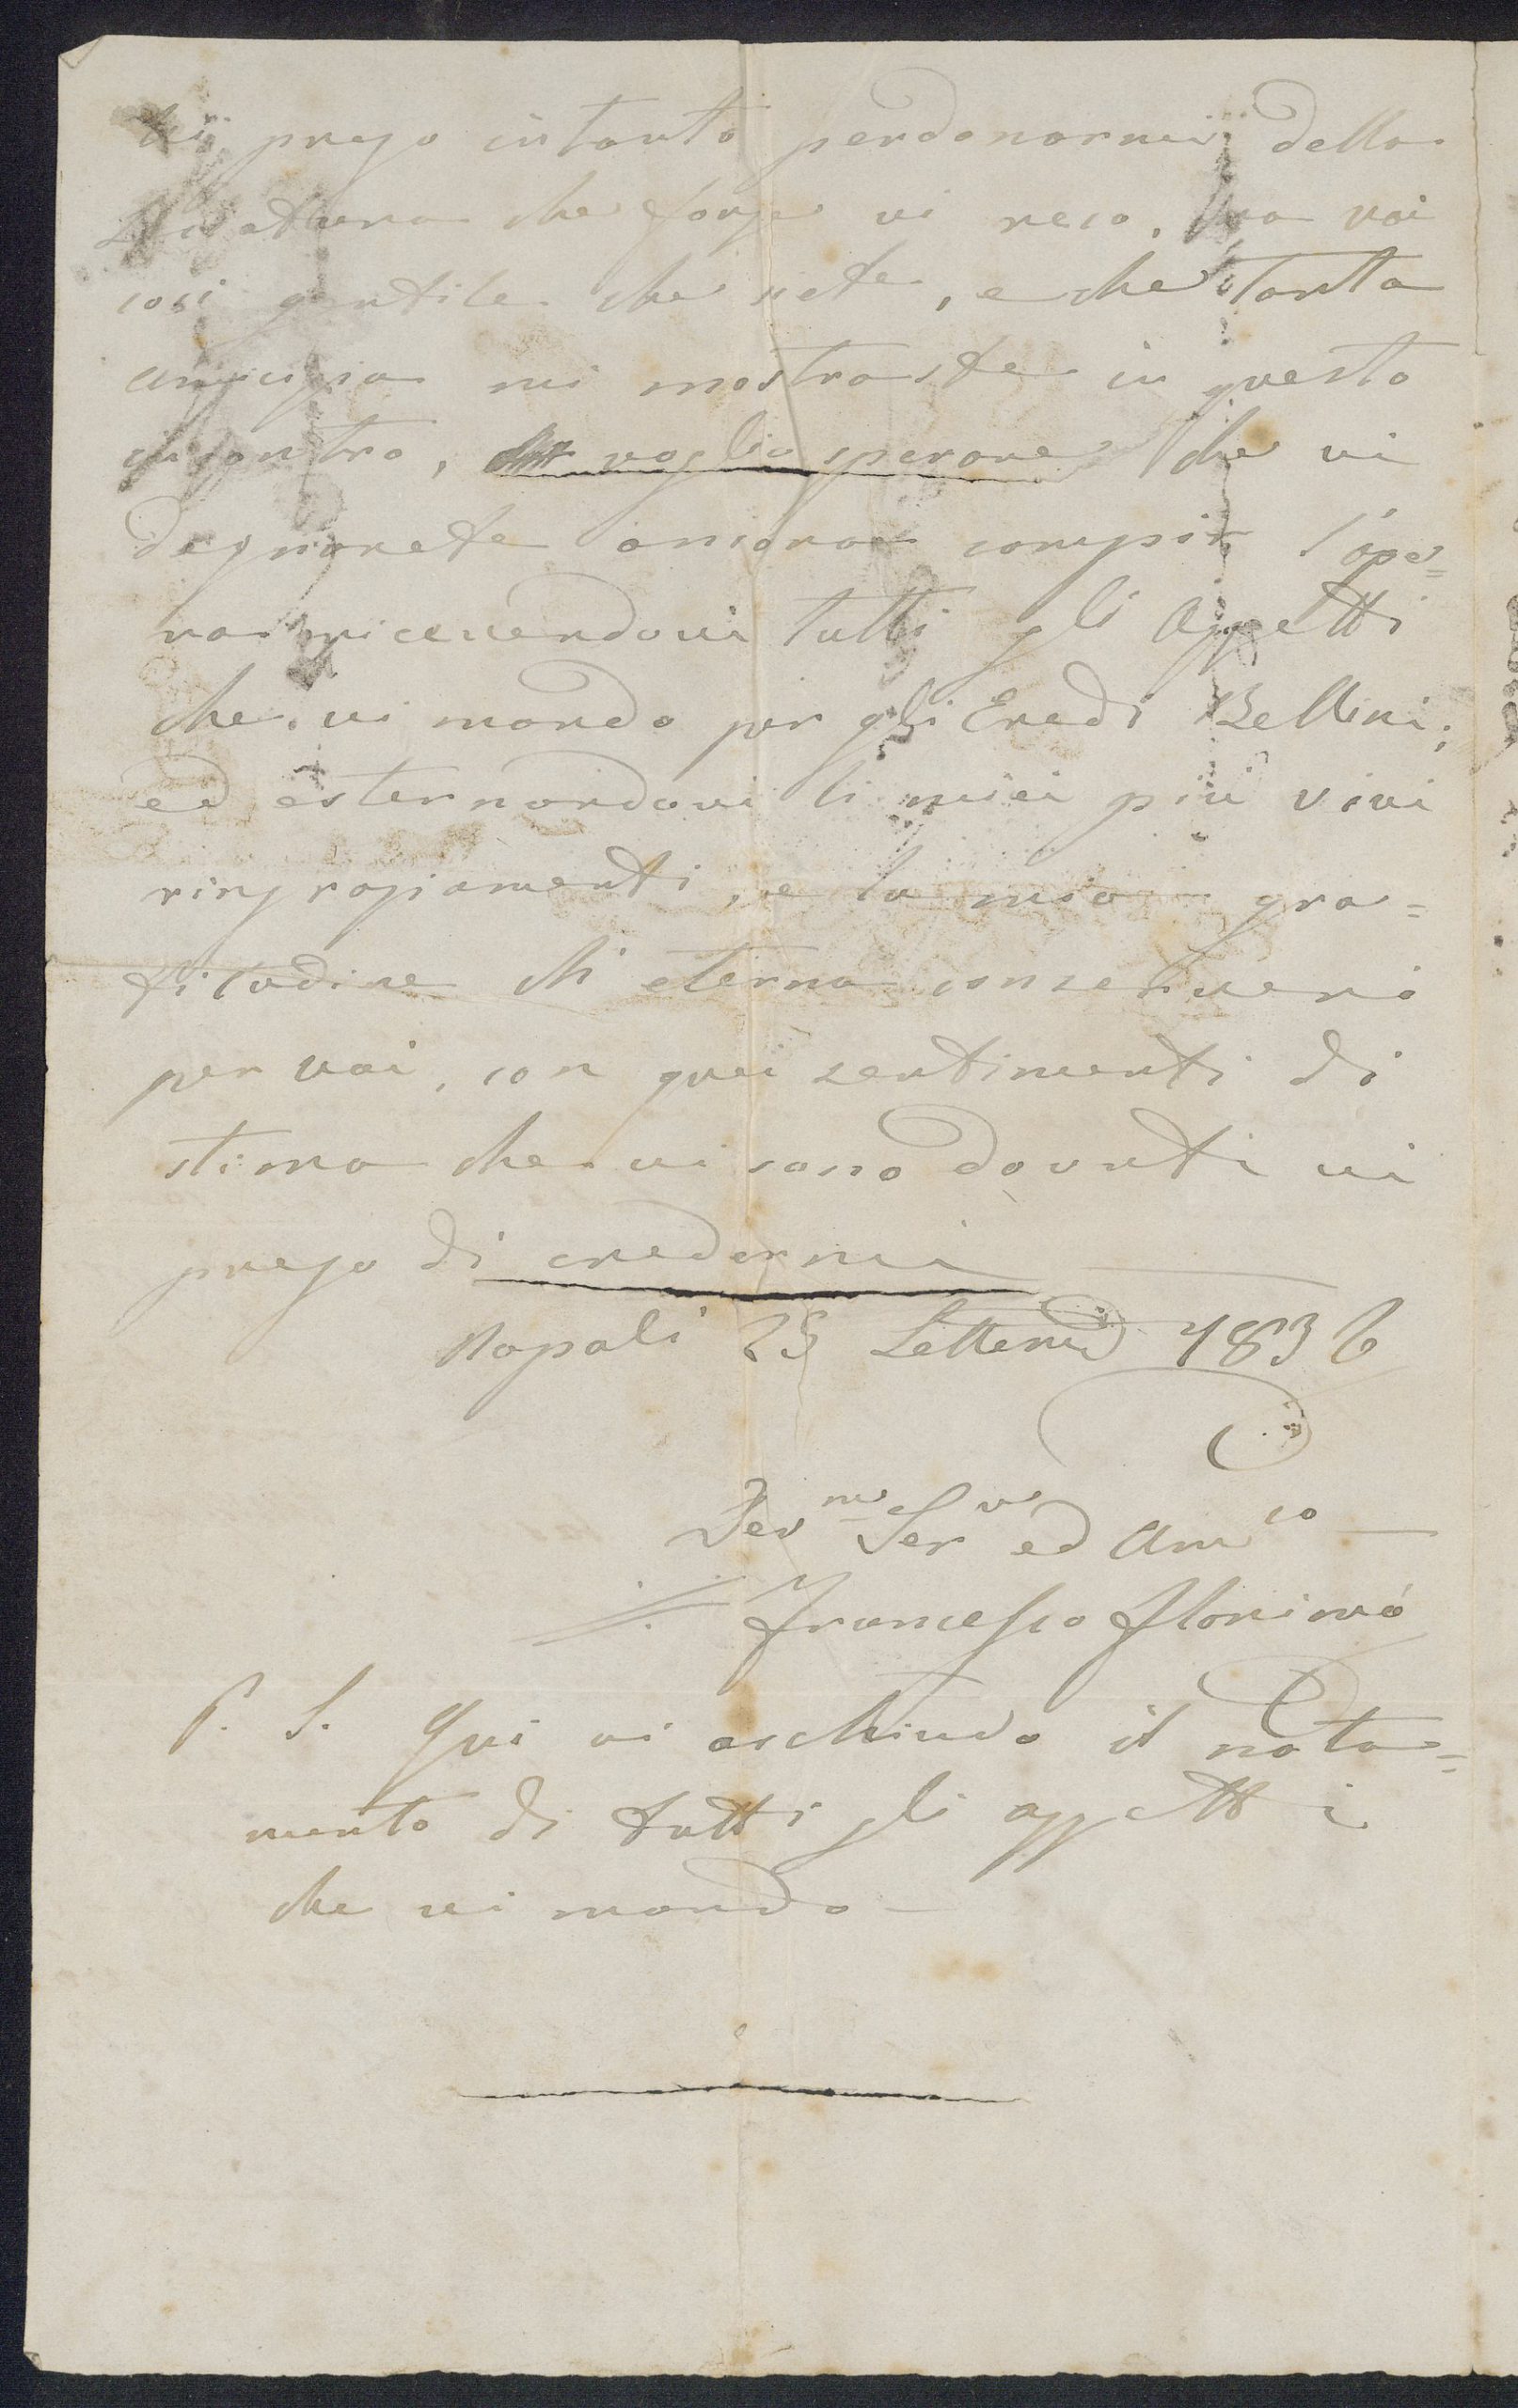 Vi prego intanto perdonarmi della
seccatura che forse vi reco, ma voi
così gentile che siete, e che tanta
amicizia mi mostraste in questo
incontro, voglio sperare che vi
degnarete ancora compir l'ope=
ra ricevendovi tutti gli oggetti
che vi mando per gli Eredi Bellini;
ed esternandovi li miei più vivi
ringraziamenti, e la mia gra=
titudine ch'eterna conserverò
per voi, con quei sentimenti di
stima che vi sono dovuti vi
prego di credermi
Napoli 25 Settembre 1836
Dev.mo Ser.re ed Am.co
Francesco Florimo
P. S. Qui vi acchiudo il nota=
mento di tutti gli oggetti
che vi mando